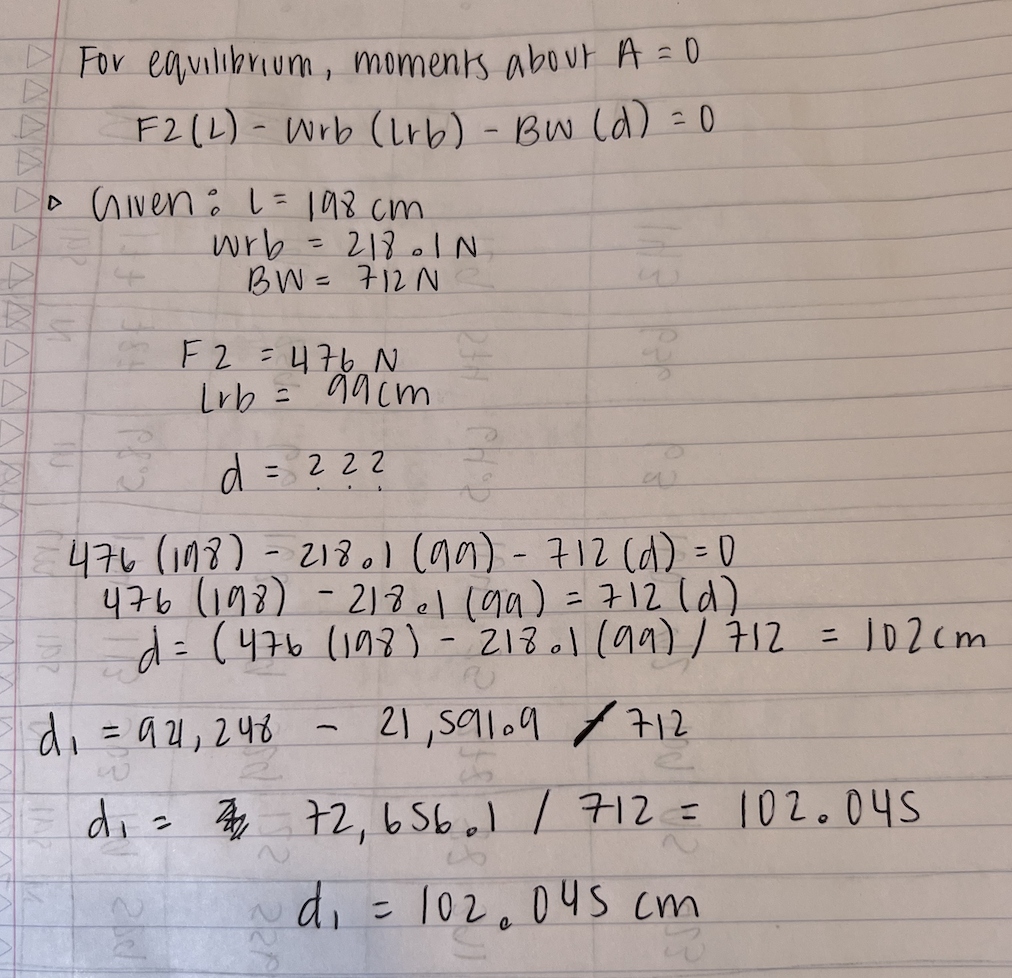 For equilibrium, moments about A = 0
F2(L) - Wrb (Lrb) - BW (d) = 0
Given: L = 198 cm
Wrb = 218.1 N
BW = 712 N
F2 = 476 N
Lrb = 99cm
d = ???
476 (198) - 218.1 (99) - 712 (d) = 0
476 (198) - 218.1 (99) = 712 (d)
d = (476 (198) - 218.1 (99) / 712 = 102 cm
d₁ = 94,248 - 21,591.9 / 712
d₁ = 72,656.1 / 712 = 102.045
d₁ = 102.045 cm